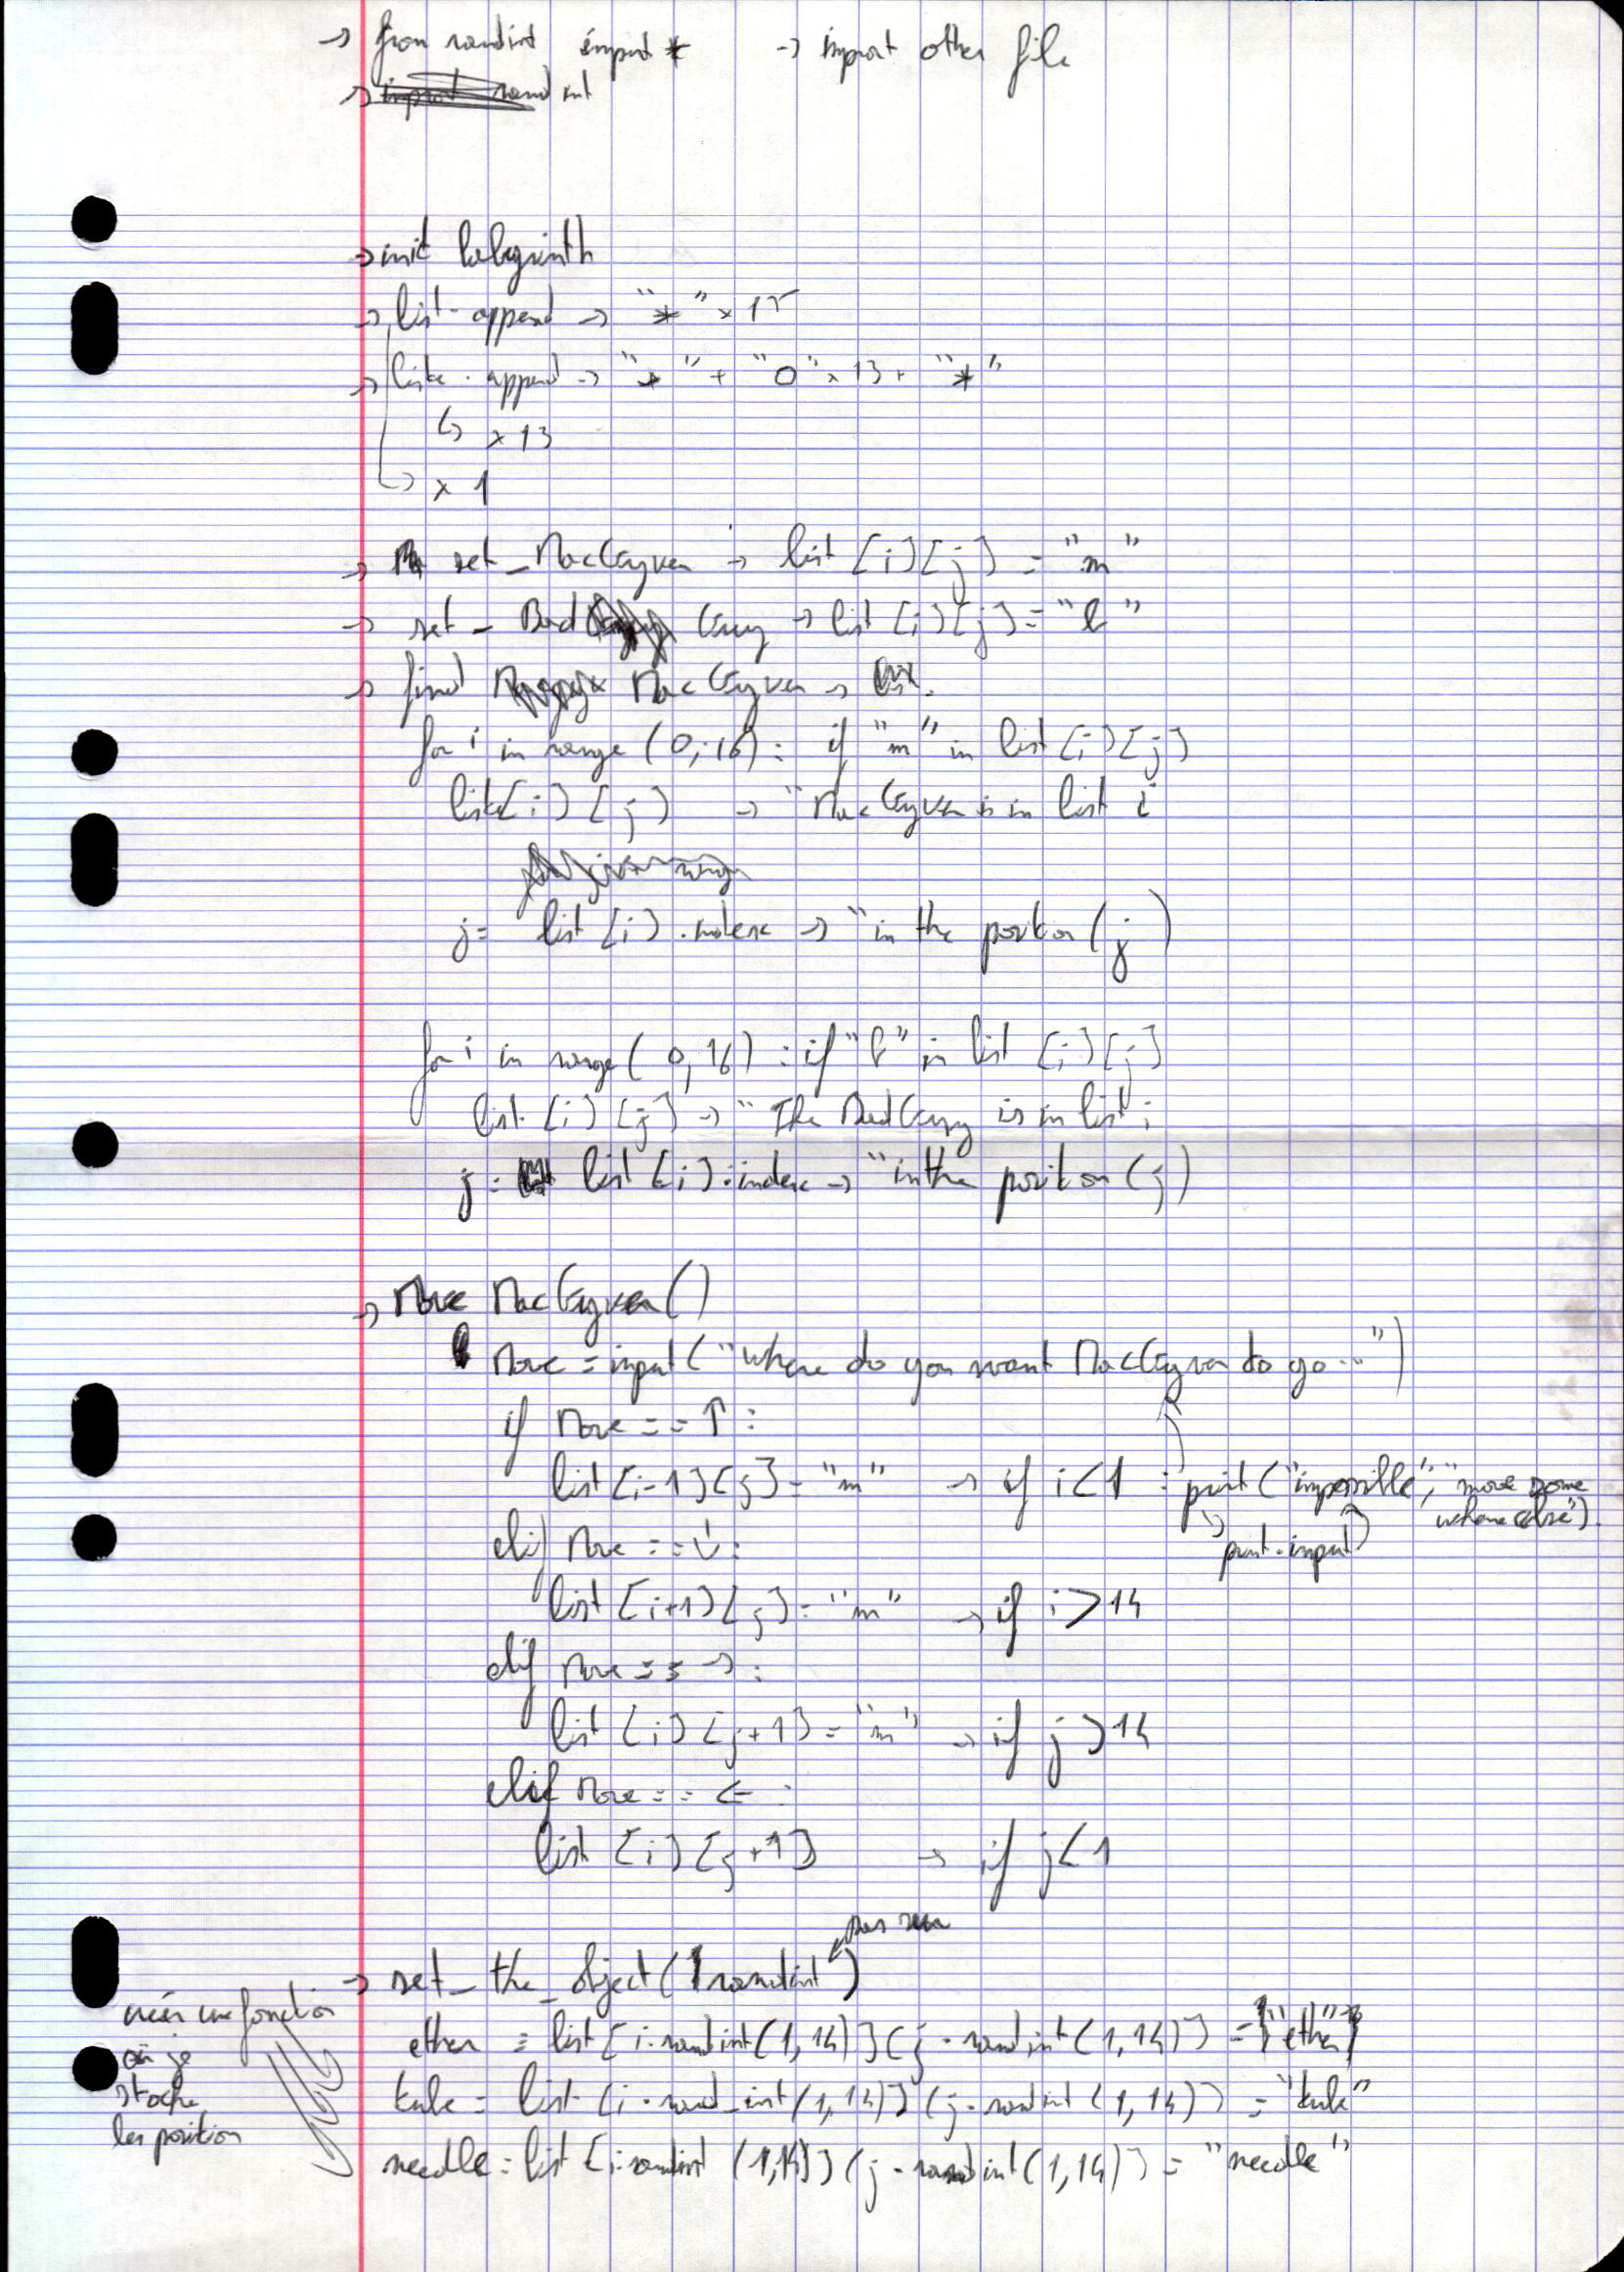 → from randint import * → import other file
→ import randint
→ init labyrinth
→ list.append → "*" x 15
→ liste.append → "*" + "0" x 13 + "*"
↳ x 13
↳ x 1
→ set_MacGyver → list [i][j] = "m"
→ set_Bad Guy → list [i][j] = "b"
→ find MacGyver →
for i in range (0,16): if "m" in list [i][j]
list[i][j] → "MacGyver is in list i
j = list [i].index → "in the position (j)
for i in range (0,16): if "b" in list [i][j]
list [i][j] → "The BadGuy is in list i
j = list [i].index → "in the position (j)
→ Move MacGyver()
Move = input("where do you want MacGyver to go...")
if Move == ↑ :
list [i-1][j] = "m" → if i<1 : print ("impossible", "move some where else").
print.input
elif Move == ↓ :
list [i+1][j] = "m" → if i>14
elif Move == → :
list [i][j+1] = "m" → if j>14
elif Move == ← :
list [i][j+1] → if j<1
→ set_the_object(randint)
créer une fonction
où je
stocke
les position
ether = list [i.randint(1,14)][j.randint(1,14)] = "ether"
tube = list [i.rand_int(1,14)][j.randint(1,14)] = "tube"
needle = list [i.randint (1,14)][j.randint(1,14)] = "needle"